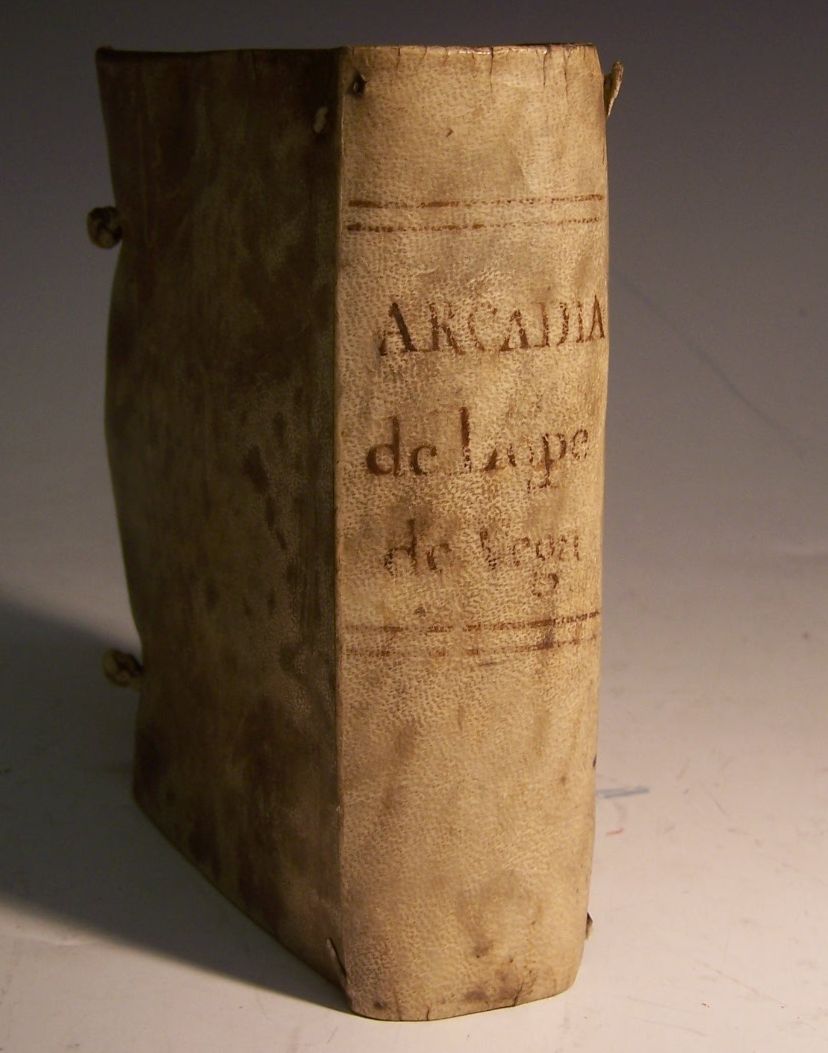 ARCADIA
de Lope
de Vega